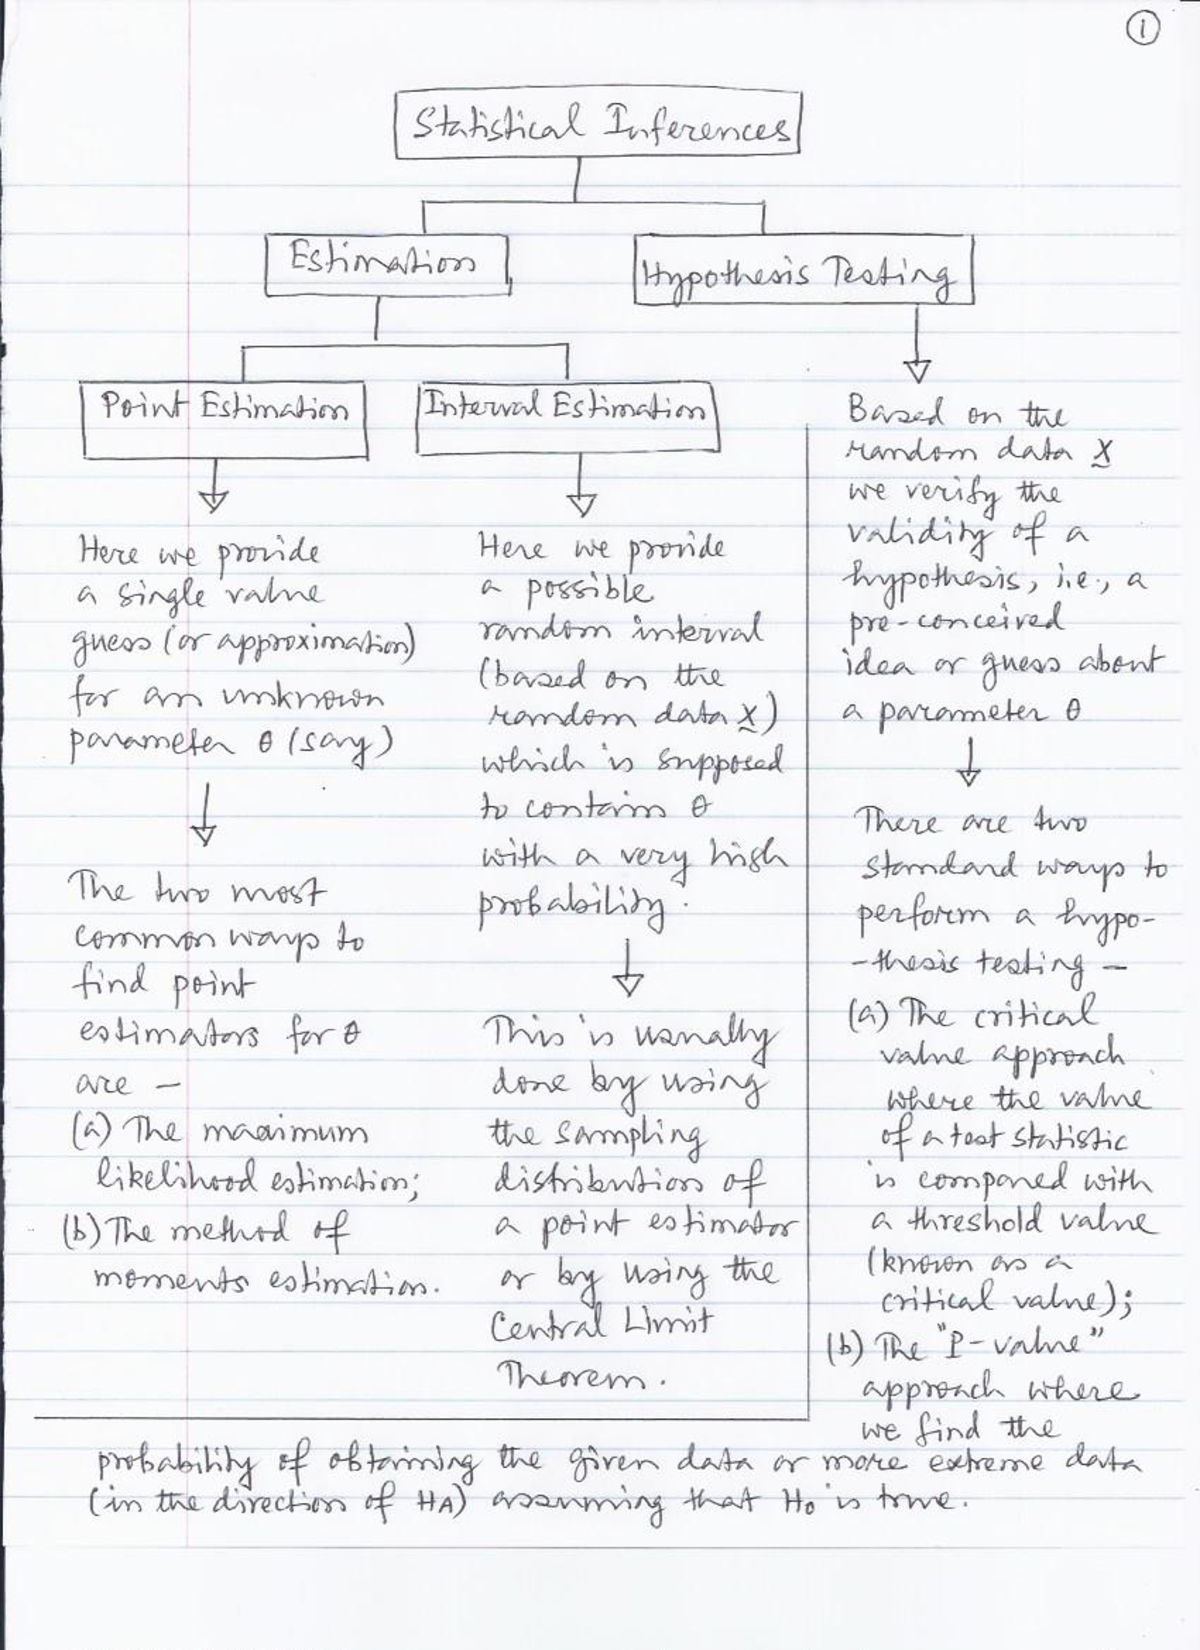 1
Statistical Inferences
Estimation
Hypothesis Testing
Point Estimation
Interval Estimation
Here we provide
a single value
guess (or approximation)
for an unknown
parameter θ (say)
The two most
common ways to
find point
estimators for θ
are –
(a) The maximum
likelihood estimation;
(b) The method of
moments estimation.
Here we provide
a possible
random interval
(based on the
random data X)
which is supposed
to contain θ
with a very high
probability.
This is usually
done by using
the sampling
distribution of
a point estimator
or by using the
Central Limit
Theorem.
Based on the
random data X
we verify the
validity of a
hypothesis, i.e., a
pre-conceived
idea or guess about
a parameter θ
There are two
standard ways to
perform a hypo-
-thesis testing –
(a) The critical
value approach
where the value
of a test statistic
is compared with
a threshold value
(known as a
critical value);
(b) The "P-value"
approach where
we find the
probability of obtaining the given data or more extreme data
(in the direction of HA) assuming that H0 is true.